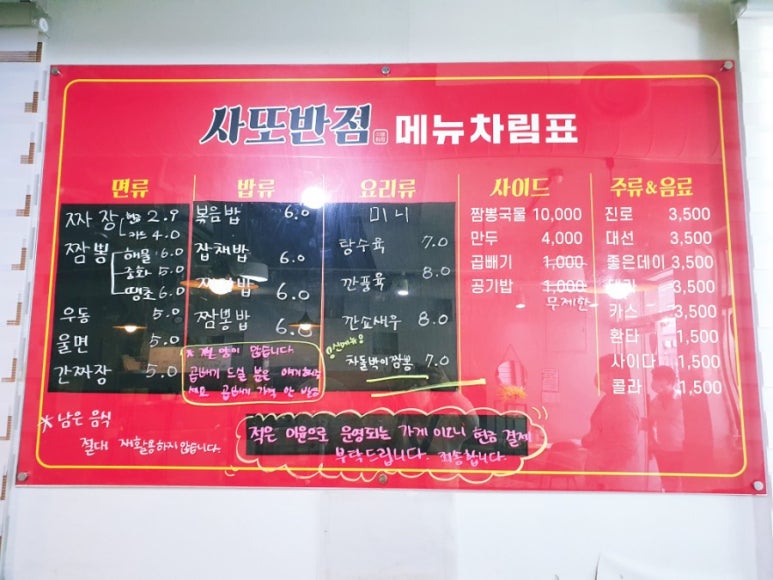 사또반점 메뉴차림표
면류
짜장 현금 2.9
카드 4.0
짬뽕 해물 6.0
홍화 5.0
땡초 6.0
우동 5.0
울면 5.0
간짜장 5.0
* 남은 음식
절대 재활용하지않습니다.
밥류
볶음밥 6.0
잡채밥 6.0
밥 6.0
짬뽕밥 6.0
양이 많습니다
곱빼기 드실 분은
곱빼기 가격 안 받음
요리류
미니
탕수육 7.0
깐풍육 8.0
깐쇼새우 8.0
신메뉴
차돌박이짬뽕 7.0
사이드
짬뽕국물 10,000
만두 4,000
곱빼기 1,000
공기밥 1,000
무제한
주류&음료
진로 3,500
대선 3,500
좋은데이 3,500
3,500
카스 3,500
환타 1,500
사이다 1,500
콜라 1,500
적은 이윤으로 운영되는 가게 이오니 현금 결제
부탁드립니다. 죄송합니다.